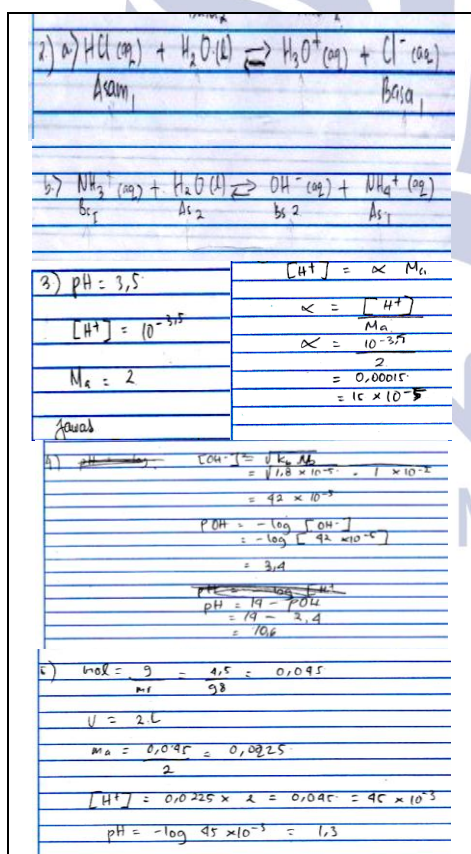 2.) a.) HCl (aq) + H₂O (l) ⇌ H₃O⁺ (aq) + Cl⁻ (aq)
Asam₁ Basa₁
b.) NH₃⁺ (aq) + H₂O (l) ⇌ OH⁻ (aq) + NH₄⁺ (aq)
Bs₁ As₂ Bs 2 As₁
3.) pH = 3,5
[H⁺] = 10⁻³,⁵
Ma = 2
Jawab
[H⁺] = ∝ Ma
∝ = [H⁺] / Ma
∝ = 10⁻³,⁵ / 2
= 0,00015
= 15 × 10⁻⁵
4.) [OH⁻] = √Kb Mb
= √1,8 × 10⁻⁵ . 1 × 10⁻²
= 42 × 10⁻⁵
POH = -log [OH⁻]
= -log [42 × 10⁻⁵]
= 3,4
pH = 14 - POH
= 14 - 3,4
= 10,6
mol = g / mr = 4,5 / 98 = 0,045
V = 2 L
ma = 0,045 / 2 = 0,0225
[H⁺] = 0,0225 × 2 = 0,045 = 45 × 10⁻³
pH = -log 45 × 10⁻³ = 1,3